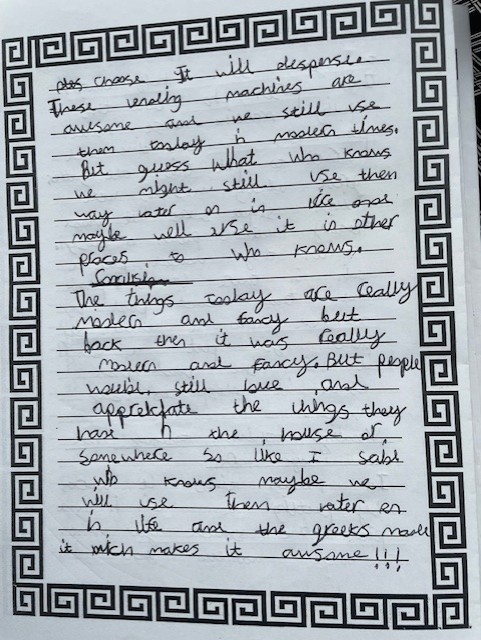 choose It will despense.
These vending machines are
awsome and we still use
them today in modern times.
But guess what who knows
we might still use then
way later on in life and
maybe well use it in other
places to who knows.
Conclusion
The things today are really
modern and fancy but
back then it was really
modern and fancy. But people
would still love and
the things they
have in the house or
somewhere so like I said
who knows maybe we
will use them later on
in life and the greeks made
it which makes it awsome!!!